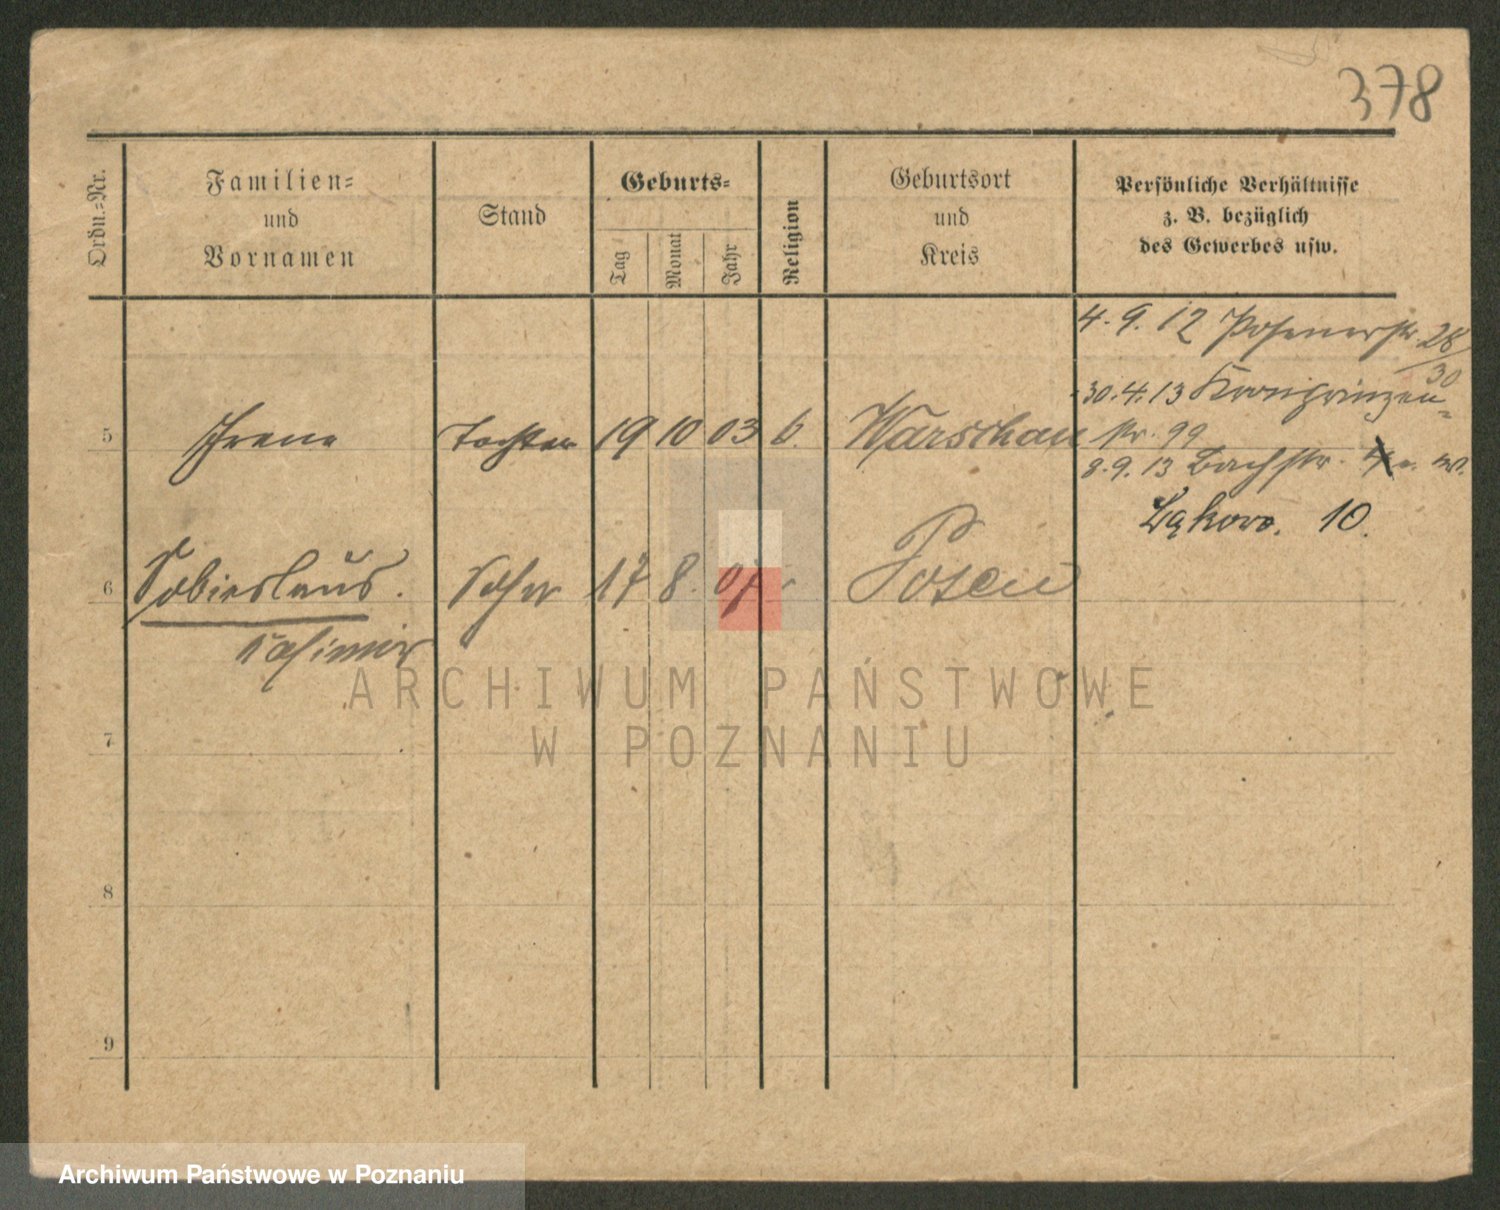 378
Ordn.-Nr.
Familien-
und
Vornamen
Stand
Geburts-
Tag
Monat
Jahr
Religion
Geburtsort
und
Kreis
Persönliche Verhältnisse
z. B. bezüglich
des Gewerbes usw.
4. 9. 12 Posenerstr. 28/30
30. 4. 13 Kronprinzen-
5 Irene Tochter 19 10 03 k. Warschau str. 99
8. 9. 13 Bachstr. 4
Łąkowa. 10.
6 Sobieslaus. Sohn 17 8. 07 Posen
Casimir
7
8
9
ARCHIWUM PAŃSTWOWE
W POZNANIU
Archiwum Państwowe w Poznaniu